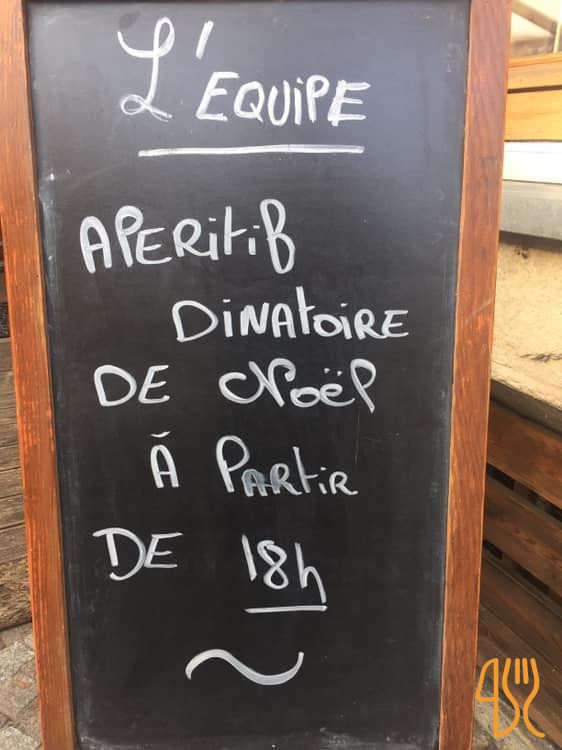 L'EQUIPE
APERITIF
DINATOIRE
DE Noël
À PARTIR
DE 18h